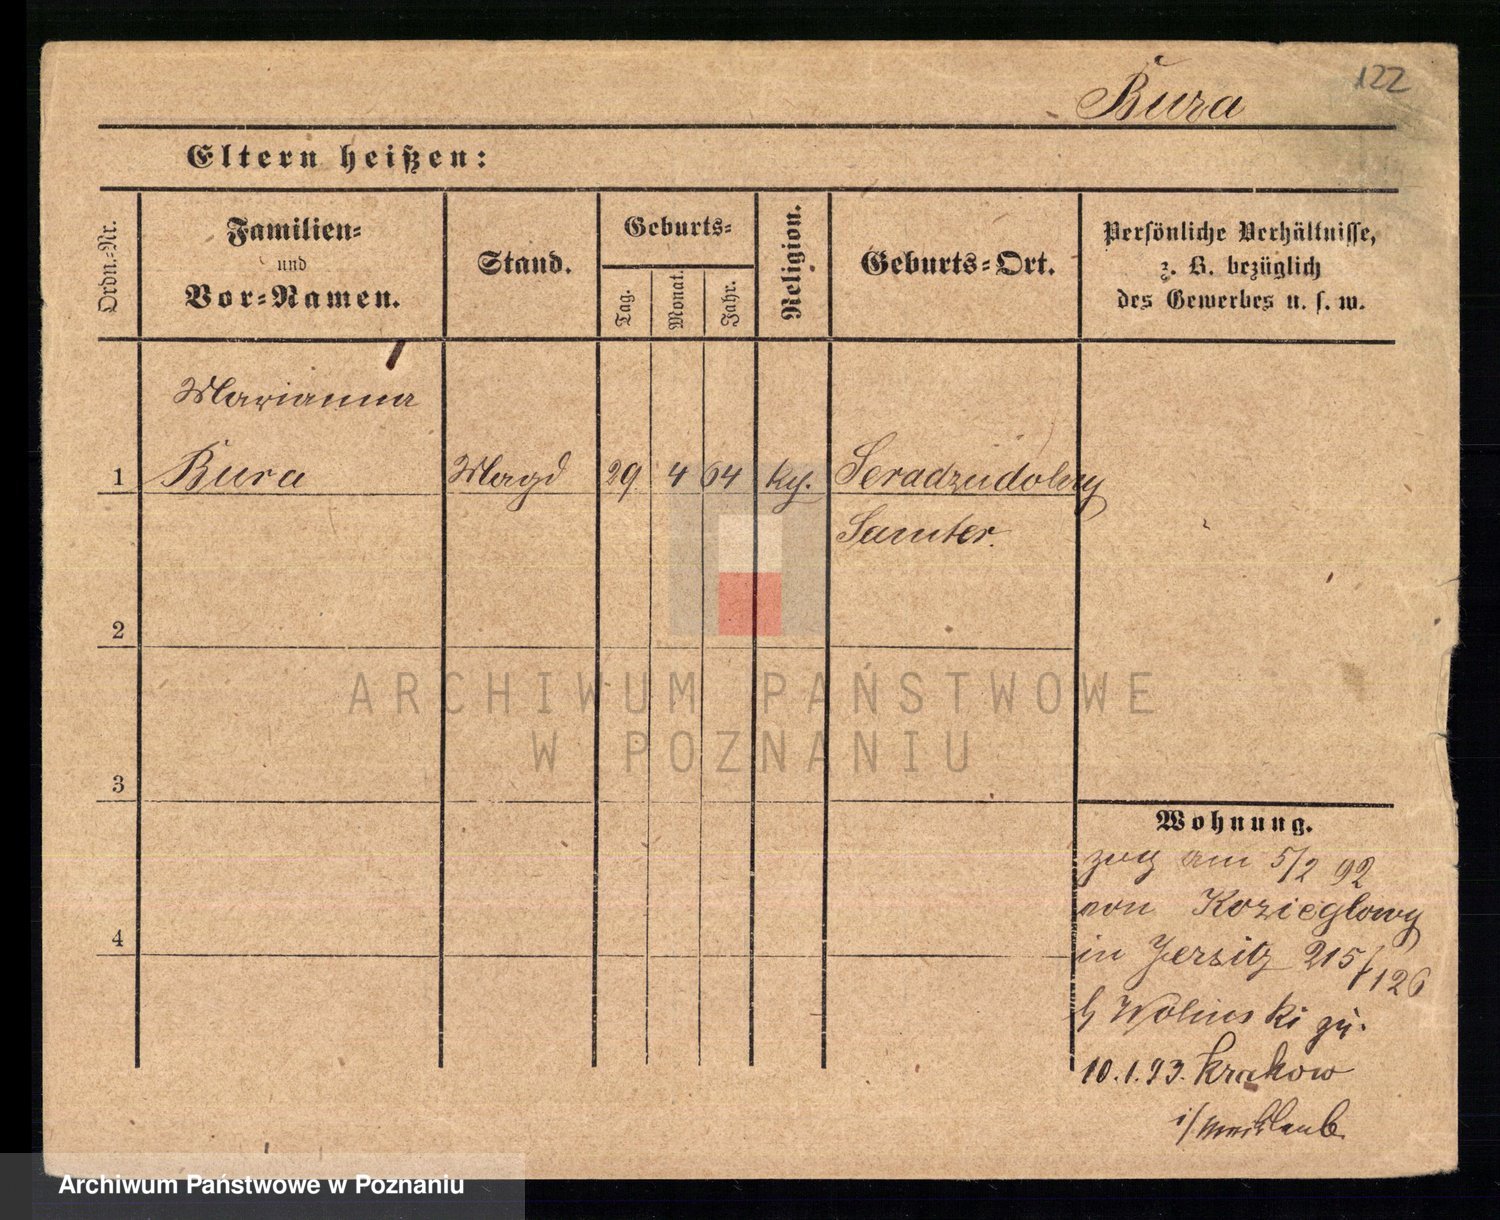 122
Bura
Eltern heißen:
Ordn.-Nr.
Familien-
und
Vor-Namen.
Stand.
Geburts-
Tag.
Monat.
Jahr.
Religion.
Geburts-Ort.
Persönliche Verhältnisse,
z. B. bezüglich
des Gewerbes u. s. w.
Marianna
1 Bura Magd 29 4 64 Seradzudolny
Samter.
2
3
4
Wohnung.
zug am 5/2 92
von Kozieglowy
in Jersitz 215/126
Wolinski
10.1.93. Krakow
i/Mecklenb.
ARCHIWUM PAŃSTWOWE
W POZNANIU
Archiwum Państwowe w Poznaniu